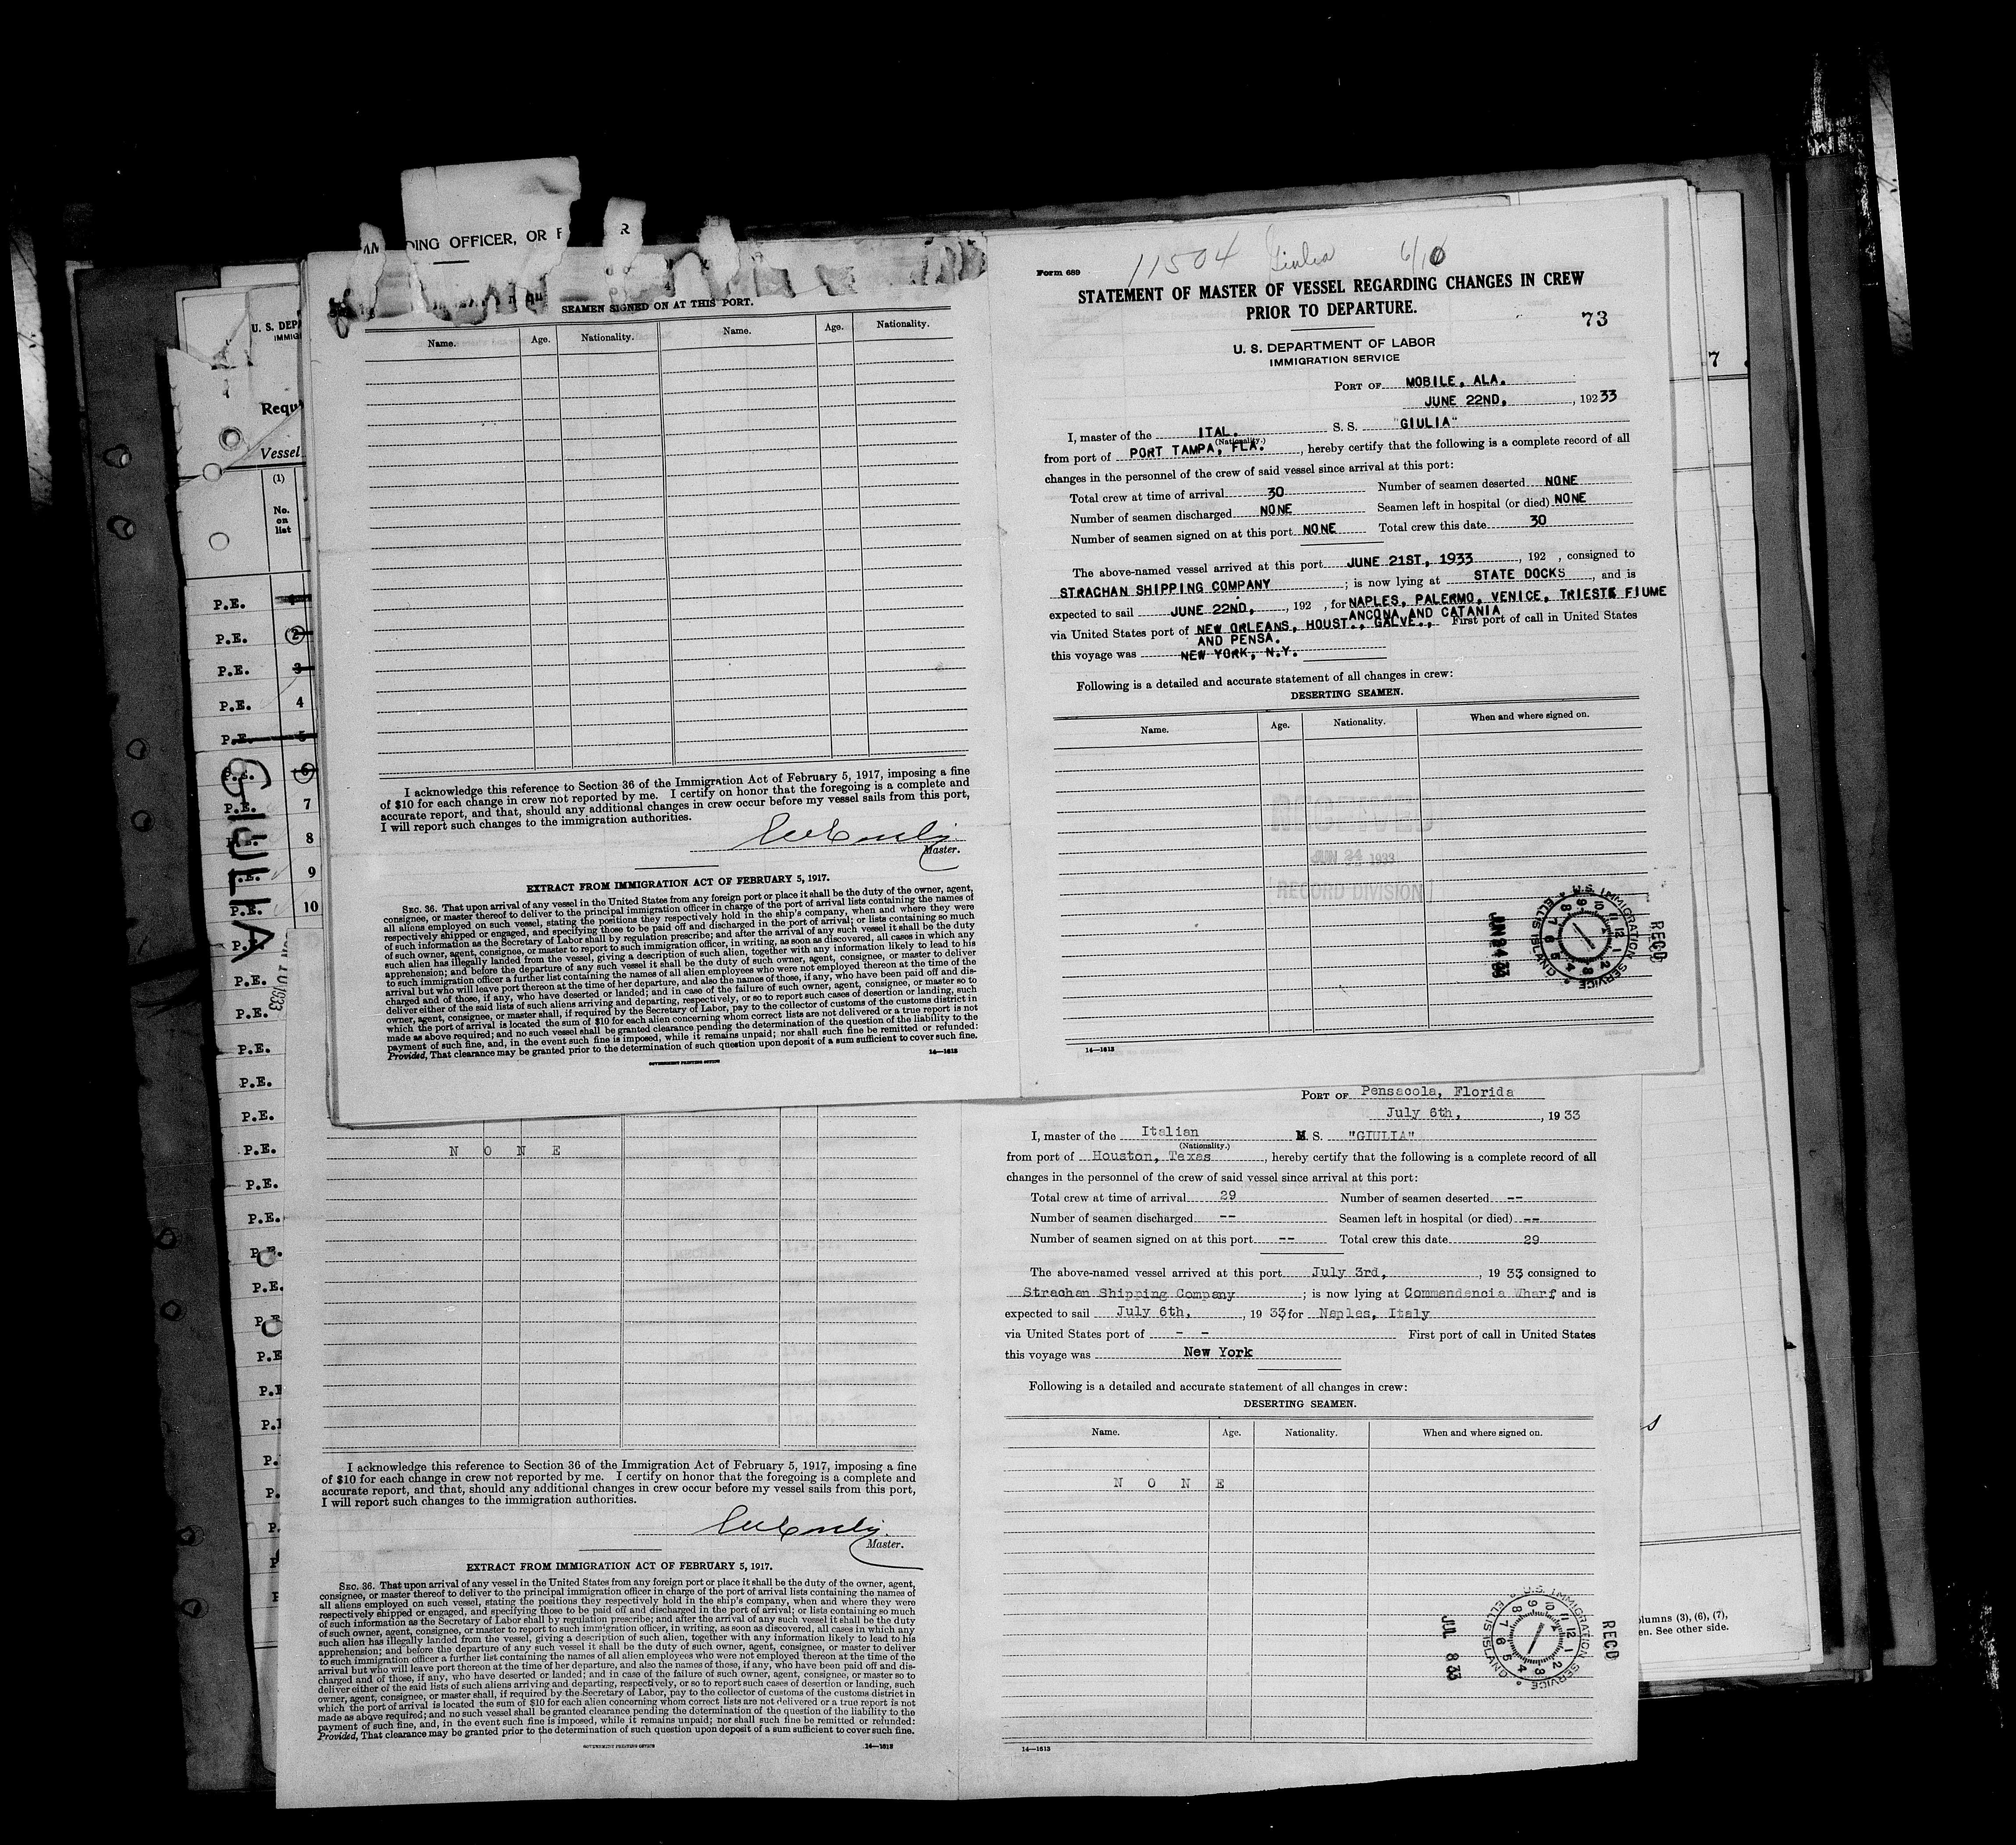 DING OFFICER, OR
R
SEAMEN SIGNED ON AT THIS PORT.
Name. Age. Nationality. Name. Age. Nationality.
I acknowledge this reference to Section 36 of the Immigration Act of February 5, 1917, imposing a fine
of $10 for each change in crew not reported by me. I certify on honor that the foregoing is a complete and
accurate report, and that, should any additional changes in crew occur before my vessel sails from this port,
I will report such changes to the immigration authorities.
Master.
EXTRACT FROM IMMIGRATION ACT OF FEBRUARY 5, 1917.
SEC. 36. That upon arrival of any vessel in the United States from any foreign port or place it shall be the duty of the owner, agent,
consignee, or master thereof to deliver to the principal immigration officer in charge of the port of arrival lists containing the names of
all aliens employed on such vessel, stating the positions they respectively hold in the ship's company, when and where they were
respectively shipped or engaged, and specifying those to be paid off and discharged in the port of arrival; or lists containing so much
of such information as the Secretary of Labor shall by regulation prescribe; and after the arrival of any such vessel it shall be the duty
of such owner, agent, consignee, or master to report to such immigration officer, in writing, as soon as discovered, all cases in which any
such alien has illegally landed from the vessel, giving a description of such alien, together with any information likely to lead to his
apprehension; and before the departure of any such vessel it shall be the duty of such owner, agent, consignee, or master to deliver
to such immigration officer a further list containing the names of all alien employees who were not employed thereon at the time of the
arrival but who will leave port thereon at the time of her departure, and also the names of those, if any, who have been paid off and dis-
charged and of those, if any, who have deserted or landed; and in case of the failure of such owner, agent, consignee, or master so to
deliver either of the said lists of such aliens arriving and departing, respectively, or so to report such cases of desertion or landing, such
owner, agent, consignee, or master shall, if required by the Secretary of Labor, pay to the collector of customs of the customs district in
which the port of arrival is located the sum of $10 for each alien concerning whom correct lists are not delivered or a true report is not
made as above required; and no such vessel shall be granted clearance pending the determination of the question of the liability to the
payment of such fine, and, in the event such fine is imposed, while it remains unpaid; nor shall such fine be remitted or refunded:
Provided, That clearance may be granted prior to the determination of such question upon deposit of a sum sufficient to cover such fine.
GOVERNMENT PRINTING OFFICE 14—1613
11504 Giulia 6/16
Form 689
STATEMENT OF MASTER OF VESSEL REGARDING CHANGES IN CREW
PRIOR TO DEPARTURE.
73
U. S. DEPARTMENT OF LABOR
IMMIGRATION SERVICE
PORT OF MOBILE, ALA.
JUNE 22ND, , 192 33
I, master of the ITAL. S. S. "GIULIA"
(Nationality.)
from port of PORT TAMPA, FLA. , hereby certify that the following is a complete record of all
changes in the personnel of the crew of said vessel since arrival at this port:
Total crew at time of arrival 30 Number of seamen deserted NONE
Number of seamen discharged NONE Seamen left in hospital (or died) NONE
Number of seamen signed on at this port NONE Total crew this date 30
The above-named vessel arrived at this port JUNE 21ST, 1933 , 192 , consigned to
STRACHAN SHIPPING COMPANY ; is now lying at STATE DOCKS , and is
expected to sail JUNE 22ND, , 192 , for NAPLES, PALERMO, VENICE, TRIESTE FIUME
ANCONA AND CATANIA
via United States port of NEW ORLEANS, HOUST., GALVE., First port of call in United States
AND PENSA.
this voyage was NEW YORK, N.Y.
Following is a detailed and accurate statement of all changes in crew:
DESERTING SEAMEN.
Name. Age. Nationality. When and where signed on.
RECEIVED
JUN 24 1933
RECORD DIVISION
JUN 24 33
U.S. IMMIGRATION SERVICE
ELLIS ISLAND
RECD
14—1613
U. S. DEPA
IMMIG
Requ
Vessel
(1)
No.
on
list
P.E.
P.E. 2
P.E. 3
P.E. 4
P.E. 5
P.E. 6
P.E. 7
P.E. 8
P.E. 9
P.E. 10
GIULIA
P.E.
P.E.
P.E.
P.E.
P.E.
P.E.
P.E.
P.E.
P.E.
P.E.
P.E.
7
N O N E
I acknowledge this reference to Section 36 of the Immigration Act of February 5, 1917, imposing a fine
of $10 for each change in crew not reported by me. I certify on honor that the foregoing is a complete and
accurate report, and that, should any additional changes in crew occur before my vessel sails from this port,
I will report such changes to the immigration authorities.
Master.
EXTRACT FROM IMMIGRATION ACT OF FEBRUARY 5, 1917.
SEC. 36. That upon arrival of any vessel in the United States from any foreign port or place it shall be the duty of the owner, agent,
consignee, or master thereof to deliver to the principal immigration officer in charge of the port of arrival lists containing the names of
all aliens employed on such vessel, stating the positions they respectively hold in the ship's company, when and where they were
respectively shipped or engaged, and specifying those to be paid off and discharged in the port of arrival; or lists containing so much
of such information as the Secretary of Labor shall by regulation prescribe; and after the arrival of any such vessel it shall be the duty
of such owner, agent, consignee, or master to report to such immigration officer, in writing, as soon as discovered, all cases in which any
such alien has illegally landed from the vessel, giving a description of such alien, together with any information likely to lead to his
apprehension; and before the departure of any such vessel it shall be the duty of such owner, agent, consignee, or master to deliver
to such immigration officer a further list containing the names of all alien employees who were not employed thereon at the time of the
arrival but who will leave port thereon at the time of her departure, and also the names of those, if any, who have been paid off and dis-
charged and of those, if any, who have deserted or landed; and in case of the failure of such owner, agent, consignee, or master so to
deliver either of the said lists of such aliens arriving and departing, respectively, or so to report such cases of desertion or landing, such
owner, agent, consignee, or master shall, if required by the Secretary of Labor, pay to the collector of customs of the customs district in
which the port of arrival is located the sum of $10 for each alien concerning whom correct lists are not delivered or a true report is not
made as above required; and no such vessel shall be granted clearance pending the determination of the question of the liability to the
payment of such fine, and, in the event such fine is imposed, while it remains unpaid; nor shall such fine be remitted or refunded:
Provided, That clearance may be granted prior to the determination of such question upon deposit of a sum sufficient to cover such fine.
GOVERNMENT PRINTING OFFICE 14—1613
PORT OF Pensacola, Florida
July 6th, , 19 33
I, master of the Italian M. S. "GIULIA"
(Nationality.)
from port of Houston, Texas , hereby certify that the following is a complete record of all
changes in the personnel of the crew of said vessel since arrival at this port:
Total crew at time of arrival 29 Number of seamen deserted --
Number of seamen discharged -- Seamen left in hospital (or died) --
Number of seamen signed on at this port -- Total crew this date 29
The above-named vessel arrived at this port July 3rd, , 19 33 consigned to
Strachan Shipping Company ; is now lying at Commendencia Wharf, and is
expected to sail July 6th, , 19 33, for Naples, Italy
via United States port of - - First port of call in United States
this voyage was New York
Following is a detailed and accurate statement of all changes in crew:
DESERTING SEAMEN.
Name. Age. Nationality. When and where signed on.
N O N E
JUL 8 33
U.S. IMMIGRATION SERVICE
ELLIS ISLAND
RECD
14—1613
olumns (3), (6), (7),
en. See other side.